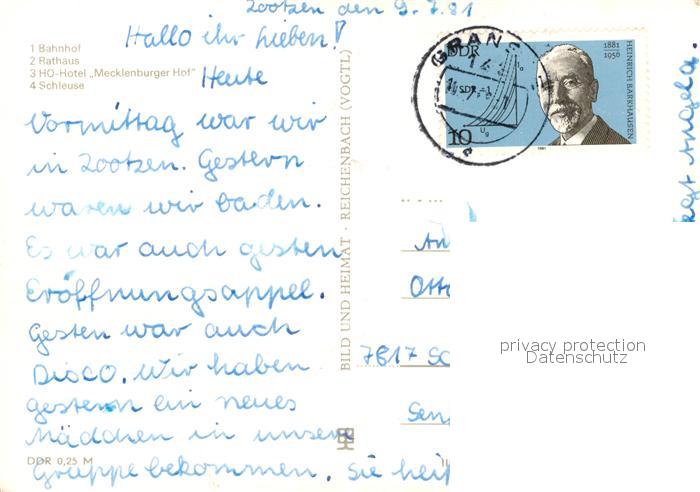 Zootzen den 9.7.81
Hallo ihr Lieben!
1 Bahnhof
2 Rathaus
3 HO-Hotel „Mecklenburger Hof"
4 Schleuse
Heute
Vormittag war wir
in Zootzen. Gestern
waren wir baden.
Es war auch gestern
Eröffnungsappel.
Gestern war auch
Disco. Wir haben
gestern ein neues
Mädchen in unsere
Gruppe bekommen. Sie heiß
DDR 0,25 M
BILD UND HEIMAT · REICHENBACH (VOGTL)
GRANS
DDR
10
1881
1956
HEINRICH BARKHAUSEN
SDR = 1
Ug
1981
An
Otto
7817 Sc
Sen
Angela.
privacy protection
Datenschutz